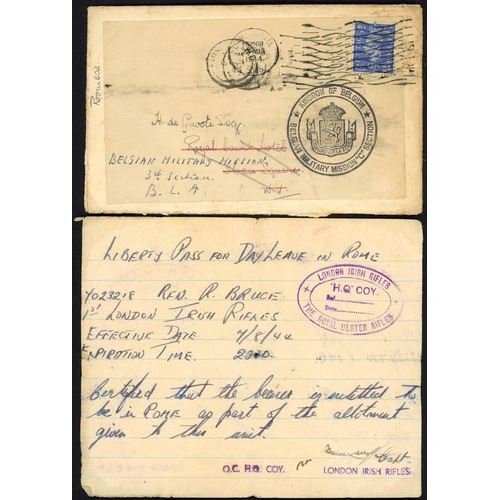 Roubaix
KINGDOM OF BELGIUM
BELGIAN MILITARY MISSION "C" SECTION
H. de Groote Esq.
Royal Court Hotel
BELGIAN MILITARY MISSION,
Sloane Square
3d section.
B. L. A.
LIBERTY PASS FOR DAY LEAVE IN ROME
LONDON IRISH RIFLES
"H.Q." COY.
Ref
Date
THE ROYAL ULSTER RIFLES
7023218 REV. R. BRUCE
1st LONDON IRISH RIFLES
EFFECTIVE DATE 7/8/44
EXPIRATION TIME. 2300.
Certified that the bearer is entitled to
be in ROME as part of the allotment
given to this unit.
Capt
O.C. H.Q. COY.
LONDON IRISH RIFLES